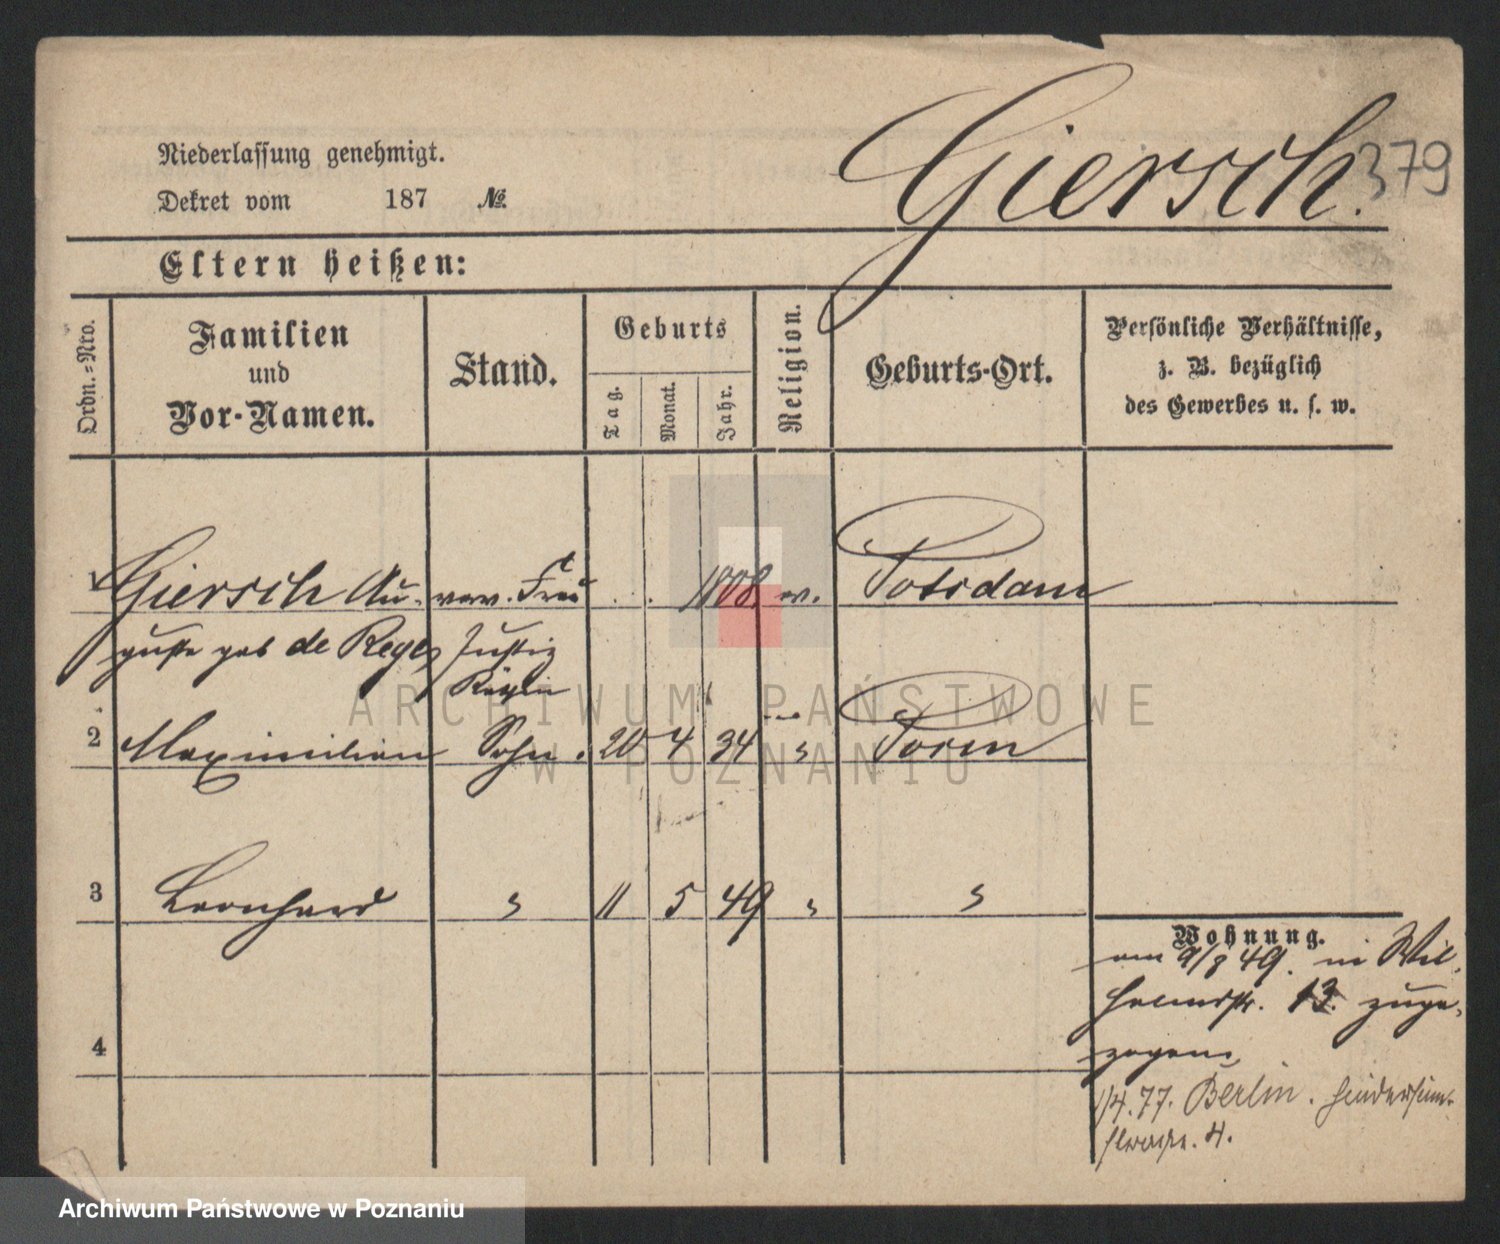 Giersch. 379
Niederlassung genehmigt.
Dekret vom 187 №
Eltern heißen:
Ordn.=Nro.
Familien
und
Vor-Namen.
Stand.
Geburts
Tag.
Monat.
Jahr.
Religion.
Geburts-Ort.
Persönliche Verhältnisse,
z. B. bezüglich
des Gewerbes u. s. w.
1 Giersch Au- verw. Frau 1808 ev. Potsdam
guste geb de Rege Justiz
Räthin
2 Maximilian Sohn. 20 4 34 " Posen
3 Leonhard " 11 5 49 " "
Wohnung.
am 9/8 49. in Wil-
helmstr. 13. zuge-
zogen
4
1/4. 77. Berlin. Hindersin-
strasse. 4.
ARCHIWUM PAŃSTWOWE
W POZNANIU
Archiwum Państwowe w Poznaniu